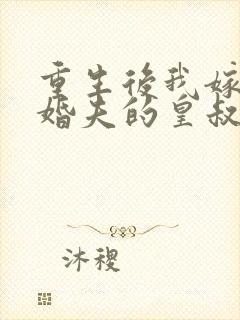 重生後我嫁
婚夫的皇叔
沐稷